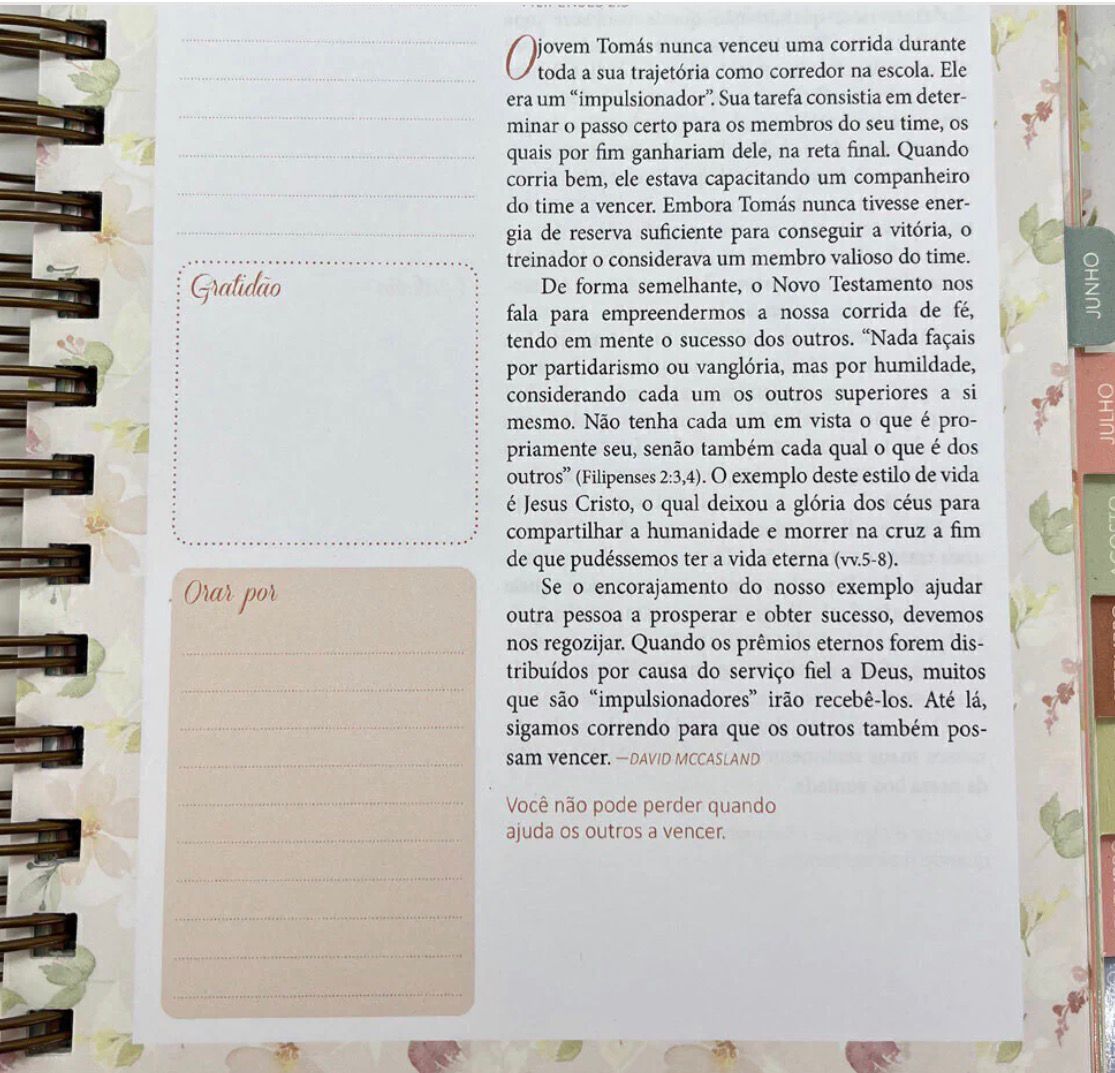 O jovem Tomás nunca venceu uma corrida durante
toda a sua trajetória como corredor na escola. Ele
era um “impulsionador”. Sua tarefa consistia em deter-
minar o passo certo para os membros do seu time, os
quais por fim ganhariam dele, na reta final. Quando
corria bem, ele estava capacitando um companheiro
do time a vencer. Embora Tomás nunca tivesse ener-
gia de reserva suficiente para conseguir a vitória, o
treinador o considerava um membro valioso do time.
De forma semelhante, o Novo Testamento nos
fala para empreendermos a nossa corrida de fé,
tendo em mente o sucesso dos outros. “Nada façais
por partidarismo ou vanglória, mas por humildade,
considerando cada um os outros superiores a si
mesmo. Não tenha cada um em vista o que é pro-
priamente seu, senão também cada qual o que é dos
outros” (Filipenses 2:3,4). O exemplo deste estilo de vida
é Jesus Cristo, o qual deixou a glória dos céus para
compartilhar a humanidade e morrer na cruz a fim
de que pudéssemos ter a vida eterna (vv.5-8).
Se o encorajamento do nosso exemplo ajudar
outra pessoa a prosperar e obter sucesso, devemos
nos regozijar. Quando os prêmios eternos forem dis-
tribuídos por causa do serviço fiel a Deus, muitos
que são “impulsionadores” irão recebê-los. Até lá,
sigamos correndo para que os outros também pos-
sam vencer. —DAVID MCCASLAND
Você não pode perder quando
ajuda os outros a vencer.
Gratidão
Orar por
JUNHO
JULHO